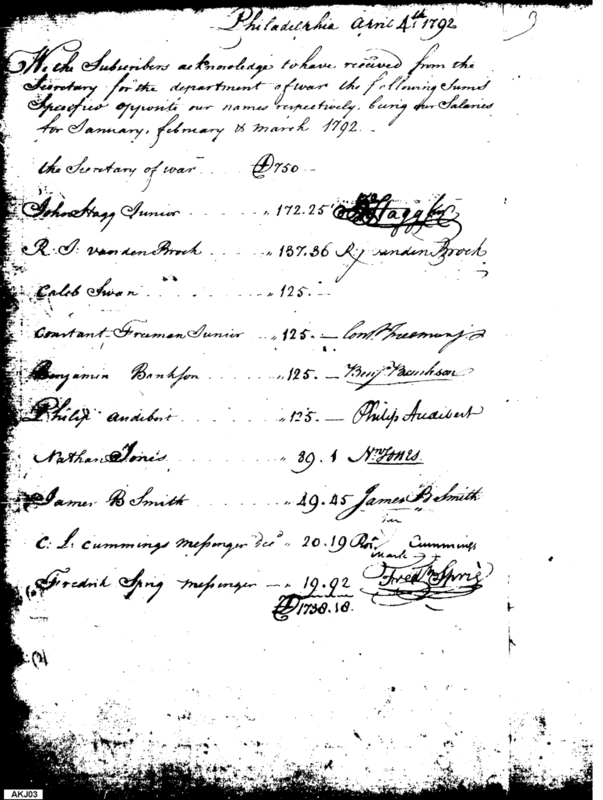 Philadelphia April 4th 1792
We the Subscribers acknowledge to have received from the
Secretary for the department of war the following Sums
Specified opposite our names respectively, being our Salaries
for January, february & march 1792.
the Secretary of war 750
John Stagg Junior " 172.25 J Stagg Jr
R. J. vanden Brock " 137.36 R J vanden Brock
Caleb Swan " 125.
Constant Freeman Junior " 125. — Const. Freeman Jr
Benjamin Bankson " 125. — Benj Bankson
Philip Audibert " 125 — Philip Audibert
Nathan Jones " 89.1 Nn Jones
James B Smith " 49.45 James B Smith
C. L. Cummings messenger " 20.19 Cummings
her
mark
Fredrik Sprig messenger — " 19.92 Fredk Sprig
1738.18.
(2)
AKJ03